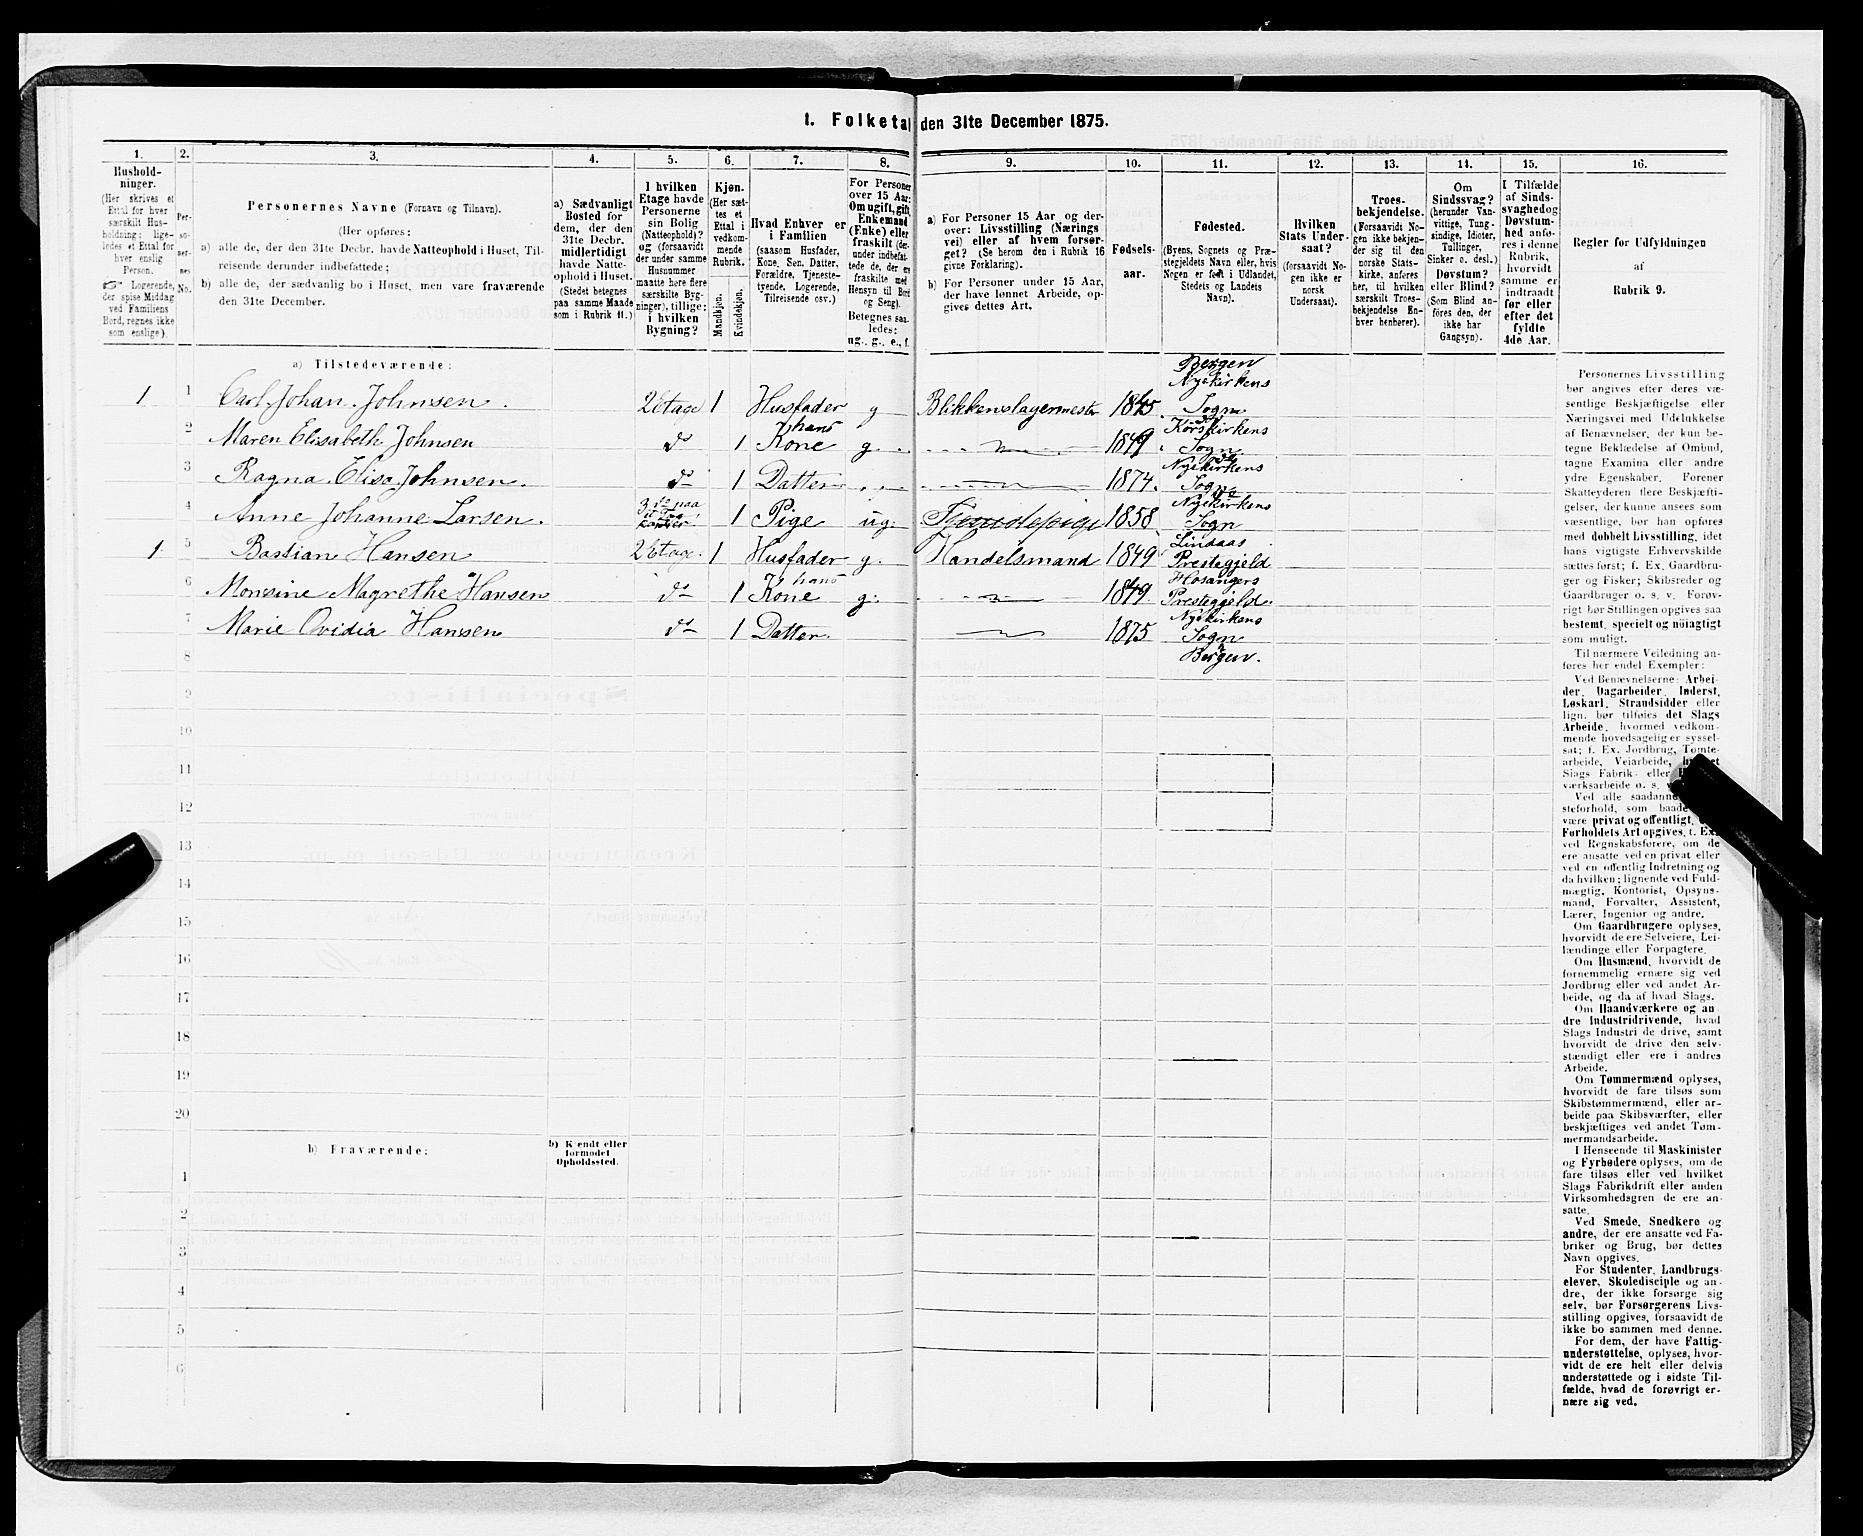 1. Folketal den 31te December 1875.
1.
2.
3.
4.
5.
6.
7.
8.
9.
10.
11.
12.
13.
14.
15.
16.
Hushold-
ninger.
(Her skrives et
Ettal for hver
særskilt Hus-
holdning; lige-
ledes et Ettal for
hver enslig
Person.
☞ Logerende,
der spise Middag
ved Familiens
Bord, regnes ikke
som enslige).
Per-
so-
ner-
nes
No.
Personernes Navne (Fornavn og Tilnavn).
(Her opføres:
a) alle de, der den 31te Decbr. havde Natteophold i Huset, Til-
reisende derunder indbefattede;
b) alle de, der sædvanlig bo i Huset, men vare fraværende
den 31te December.
a) Sædvanligt
Bosted for
dem, der den
31te Decbr.
midlertidigt
havde Natte-
ophold i Huset.
(Stedet betegnes
paa samme Maade
som i Rubrik 11.)
I hvilken
Etage havde
Personerne
sin Bolig
(Natteophold)?
og (forsaavidt
der under samme
Husnummer
maatte høre flere
særskilte Byg-
ninger), tillige:
i hvilken
Bygning?
Kjøn.
(Her sæt-
tes et
Ettal i
vedkom-
mende
Rubrik.
Mandkjøn.
Kvindekjøn.
Hvad Enhver er
i Familien
(saasom Husfader,
Kone, Søn, Datter,
Forældre, Tjeneste-
tyende, Logerende,
Tilreisende osv.)
For Personer
over 15 Aar:
Om ugift, gift,
Enkemand
(Enke) eller
fraskilt (der-
under indbefat-
tede de, der ere
fraskilte med
Hensyn til Bord
og Seng).
Betegnes saa-
ledes:
ug., g., e., f.
a) For Personer 15 Aar og der-
over: Livsstilling (Nærings-
vei) eller af hvem forsør-
get? (Se herom den i Rubrik 16
givne Forklaring).
b) For Personer under 15 Aar,
der have lønnet Arbeide, op-
gives dettes Art.
Fødsels-
aar.
Fødested.
(Byens, Sognets og Præ-
stegjeldets Navn eller, hvis
Nogen er født i Udlandet,
Stedets og Landets
Navn).
Hvilken
Stats Under-
saat?
(forsaavidt No-
gen ikke er
norsk
Undersaat).
Troes-
bekjendelse.
(Forsaavidt No-
gen ikke bekjen-
der sig til den
norske Stats-
kirke, anføres
her, til hvilken
særskilt Troes-
bekjendelse En-
hver henhører).
Om
Sindssvag?
(herunder Van-
vittige, Tung-
sindige, Idioter,
Tullinger,
Sinker o. desl.)
Døvstum?
eller Blind?
(Som Blind an-
føres den, der
ikke har
Gangsyn).
I Tilfælde
af Sinds-
svaghed og
Døvstum-
hed anfø-
res i denne
Rubrik,
hvorvidt
samme er
indtraadt
før eller
efter det
fyldte
4de Aar.
Regler for Udfyldningen
af
Rubrik 9.
a) Tilstedeværende:
Bergen
Nyekirkens
1 1 Carl Johan Johnsen. 2 Etage 1 Husfader g Blikkenslagermester 1845 Sogn
2 Maren Elisabeth Johnsen do 1 hans Kone g. 1849 Korskirkens Sogn
3 Ragna Elisa Johnsen. do 1 Datter 1874. Nyekirkens Sogn
4 Anne Johanne Larsen. 1 Pige ug. Tjenestepige 1858 Nyekirkens Sogn
1 5 Bastian Hansen 2 Etage. 1 Husfader g. Handelsmand 1849 Lindaas Prestegjeld
6 Monsine Magrethe Hansen do 1 hans Kone g. 1849. Hosangers Prestegjeld.
7 Marie Ovidia Hansen do 1 Datter. 1875 Nyekirkens Sogn
8 Bergen.
9
10
11
12
13
14
15
16
17
18
19
20
b) Fraværende:
b) Kjendt eller
formodet
Opholdssted.
1
2
3
4
5
6
Personernes Livsstilling
bør angives efter deres væ-
sentlige Beskjæftigelse eller
Næringsvei med Udelukkelse
af Benævnelser, der kun be-
tegne Beklædelse af Ombud,
tagne Examina eller andre
ydre Egenskaber. Forener
Skatteyderen flere Beskjæfti-
gelser, der kunne ansees som
væsentlige, bør han opføres
med dobbelt Livsstilling, idet
hans vigtigste Erhvervskilde
sættes først; f. Ex. Gaardbru-
ger og Fisker; Skibsreder og
Gaardbruger o. s. v. Forøv-
rigt bør Stillingen opgives saa
bestemt, specielt og nøiagtigt
som muligt.
Til nærmere Veiledning an-
føres her endel Exempler:
Ved Benævnelserne: Arbei-
der, Dagarbeider, Inderst,
Løskarl, Strandsidder eller
lign. bør tilføies det Slags
Arbeide, hvormed vedkom-
mende hovedsagelig er syssel-
sat; f. Ex. Jordbrug, Tomte-
arbeide, Veiarbeide,
Slags Fabrik- eller
værksarbeide o. s.
Ved alle saadanne
steforhold, som baade
være privat og offentligt,
Forholdets Art opgives, t. Ex.
ved Regnskabsførere, om de
ere ansatte ved en privat eller
ved en offentlig Indretning og
da hvilken; lignende ved Fuld-
mægtig, Kontorist, Opsyns-
mand, Forvalter, Assistent,
Lærer, Ingeniør og andre.
Om Gaardbrugere oplyses,
hvorvidt de ere Selveiere, Lei-
lændinge eller Forpagtere.
Om Husmænd, hvorvidt de
fornemmelig ernære sig ved
Jordbrug eller ved andet Ar-
beide, og da af hvad Slags.
Om Haandværkere og an-
dre Industridrivende, hvad
Slags Industri de drive, samt
hvorvidt de drive den selv-
stændigt eller ere i andres
Arbeide.
Om Tømmermænd oplyses,
hvorvidt de fare tilsøs som
Skibstømmermænd, eller ar-
beide paa Skibsværfter, eller
beskjæftiges ved andet Tøm-
mermandsarbeide.
I Henseende til Maskinister
og Fyrbødere oplyses, om de
fare tilsøs eller ved hvilket
Slags Fabrikdrift eller anden
Virksomhedsgren de ere an-
satte.
Ved Smede, Snedkere og
andre, der ere ansatte ved Fa-
briker og Brug, bør dettes
Navn opgives.
For Studenter, Landbrugs-
elever, Skoledisciple og an-
dre, der ikke forsørge sig
selv, bør Forsørgerens Livs-
stilling opgives, forsaavidt de
ikke bo sammen med denne.
For dem, der have Fattig-
understøttelse, oplyses, hvor-
vidt de ere helt eller delvis
understøttede og i sidste Til-
fælde, hvad de forøvrigt er-
nære sig ved.